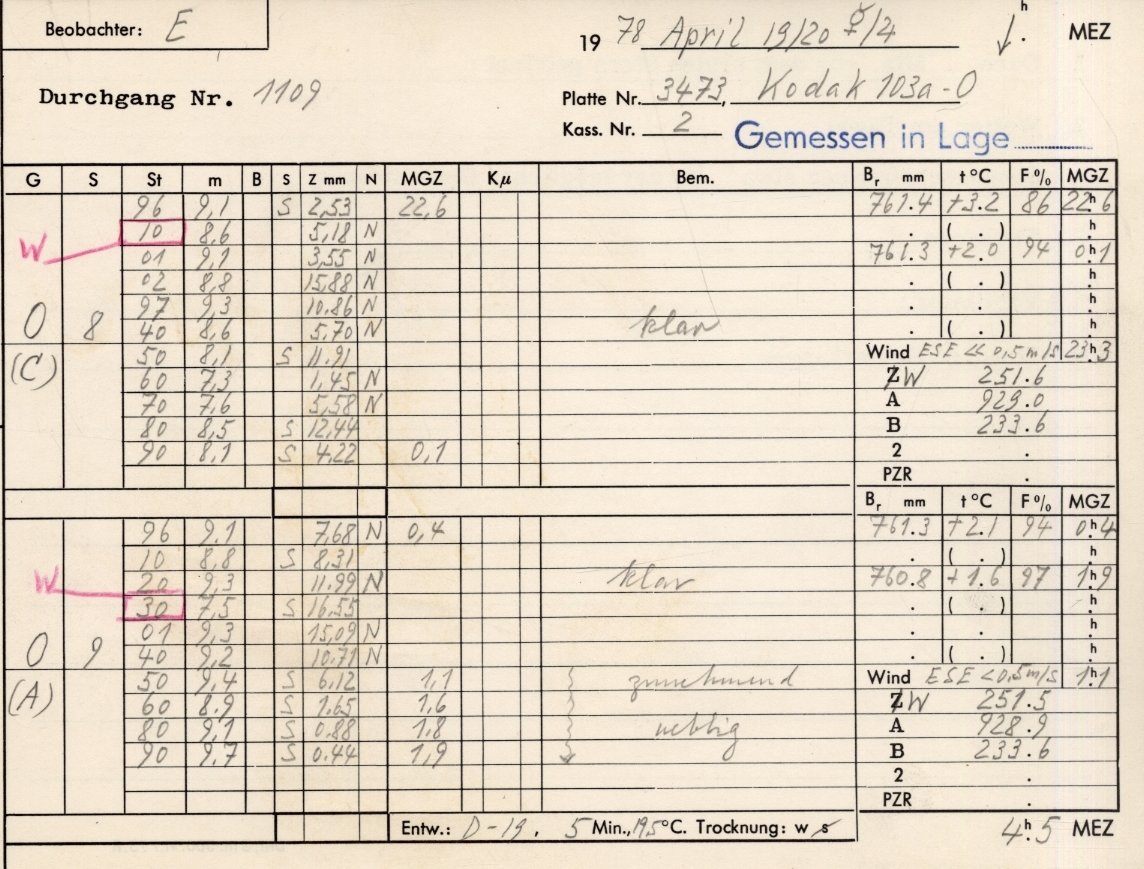 Beobachter: E
19 78 April 19/20 ☿/4 h . MEZ
Durchgang Nr. 1109
Platte Nr. 3473, Kodak 103a-O
Kass. Nr. 2 Gemessen in Lage
G S St m B S Z mm N MGZ Kμ Bem. Br mm t °C F % MGZ
96 9,1 S 2,53 22,6 761.4 +3.2 86 22h6
W 10 8,6 5,18 N . ( . ) h
01 9,1 3,55 N 761.3 +2.0 94 0h1
02 8,8 15,88 N . ( . ) h
97 9,3 10.86 N . . h
O 8 40 8,6 5,70 N klar . ( . ) h
(C) 50 8,1 S 11.91 Wind ESE << 0,5 m/s 23h3
60 7,3 1,45 N Z W 251.6
70 7,6 5,58 N A 929.0
80 8,5 S 12,44 B 233.6
90 8,1 S 4,22 0,1 2 .
PZR .
Br mm t °C F % MGZ
96 9,1 7,68 N 0,4 761.3 +2.1 94 0h4
10 8,8 S 8,31 . ( . ) h
W 20 9,3 11.99 N klar 760.8 +1.6 97 1h9
30 7,5 S 16,55 . ( . ) h
01 9,3 15,09 N . . h
O 9 40 9,2 10.71 N . ( . ) h
(A) 50 9,4 S 6,12 1,1 zunehmend Wind ESE <0,5 m/s 1h1
60 8.9 S 1.65 1,6 Z W 251.5
80 9,1 S 0.88 1.8 neblig A 928.9
90 9,7 S 0.44 1,9 B 233.6
2 .
PZR .
Entw.: D-19, 5 Min., 19,5 °C. Trocknung: w s 4h.5 MEZ